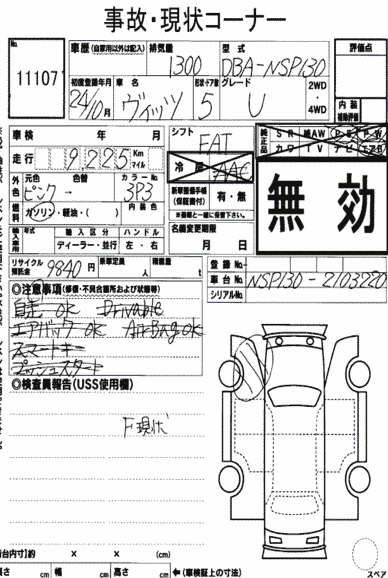 事故・現状コーナー
No.
11107
車歴(自家用以外は記入)
排気量
型式
評価点
1300
DBA-NSP130
初度登録年月
車名
形状+ドア数
グレード
2WD
・
4WD
24/10月
ヴィッツ
5
U
内装
補助評価
車検 年 月
シフト
FAT
純正品
SR
AW
PS
PW
カワ
TV
ナビ
エアB
走行
9,225
Km
マイル
冷房
AAC
元色
色替
カラーNo.
ピンク →
3P3
新車整備手帳
(保証書付)
有・無
※書類と一緒に保管下さい。
無効
燃料
ガソリン・軽油・( )
内装色
名義変更期限
月 日
輸入車
年式
輸入区分
ハンドル
ディーラー・並行
左・右
リサイクル
預託金
9840円
乗車定員
人
積載量
t
登録No.
車台No.
NSP130-2103220
シリアルNo.
◎注意事項(修復・不具合箇所および状態等)
自走 OK Drivable
エアバック OK AirBag OK
スマートキー
プッシュスタート
◎検査員報告(USS使用欄)
F現状
荷台内寸)約 × × (cm)
長さ cm 幅 cm 高さ cm ←(車検証上の寸法)
スペア